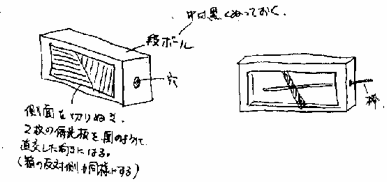 中は黒くぬっておく.
段ボール
穴
側面を切りぬき.
2枚の偏光板を図のように
直交した向きにはる.
(箱の反対側も同様にする)
棒